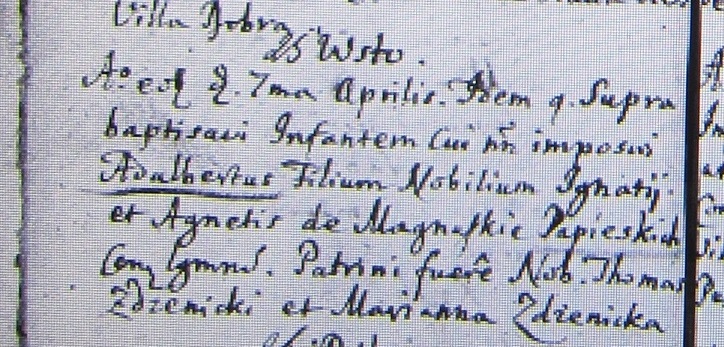 Villa Dobrz
25 Wsto.
Ao eod d. 7ma Aprilis. Idem q. Supra
baptisavi Infantem Cui nn imposui
Adalbertus Filium Nobilium Ignatij
et Agnetis de Magnuskie Papieskich
Conz Lgmor. Patrini fuere Nob. Thomas
Zdzenicki et Marianna Zdzienicka